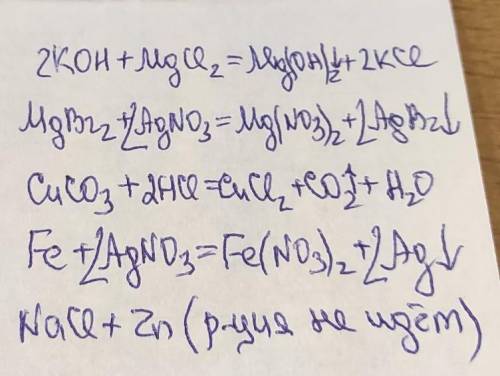 2KOH + MgCl₂ = Mg(OH)₂↓ + 2KCl
MgBr₂ + 2AgNO₃ = Mg(NO₃)₂ + 2AgBr↓
CuCO₃ + 2HCl = CuCl₂ + CO₂↑ + H₂O
Fe + 2AgNO₃ = Fe(NO₃)₂ + 2Ag↓
NaCl + Zn (р-ция не идёт)